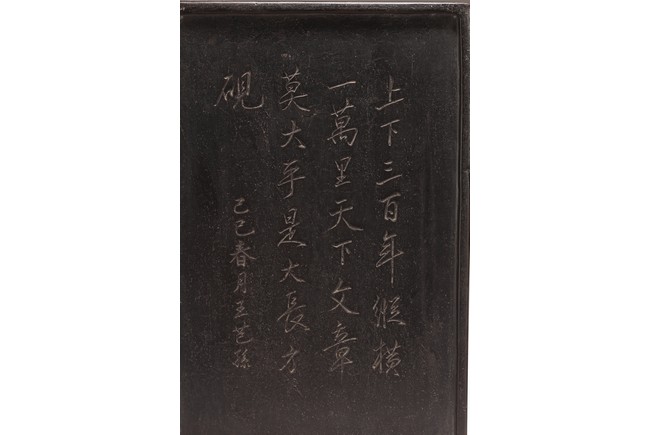 上下三百年縱橫
一萬里天下文章
莫大乎是大長方
硯
己巳春月王芑孫